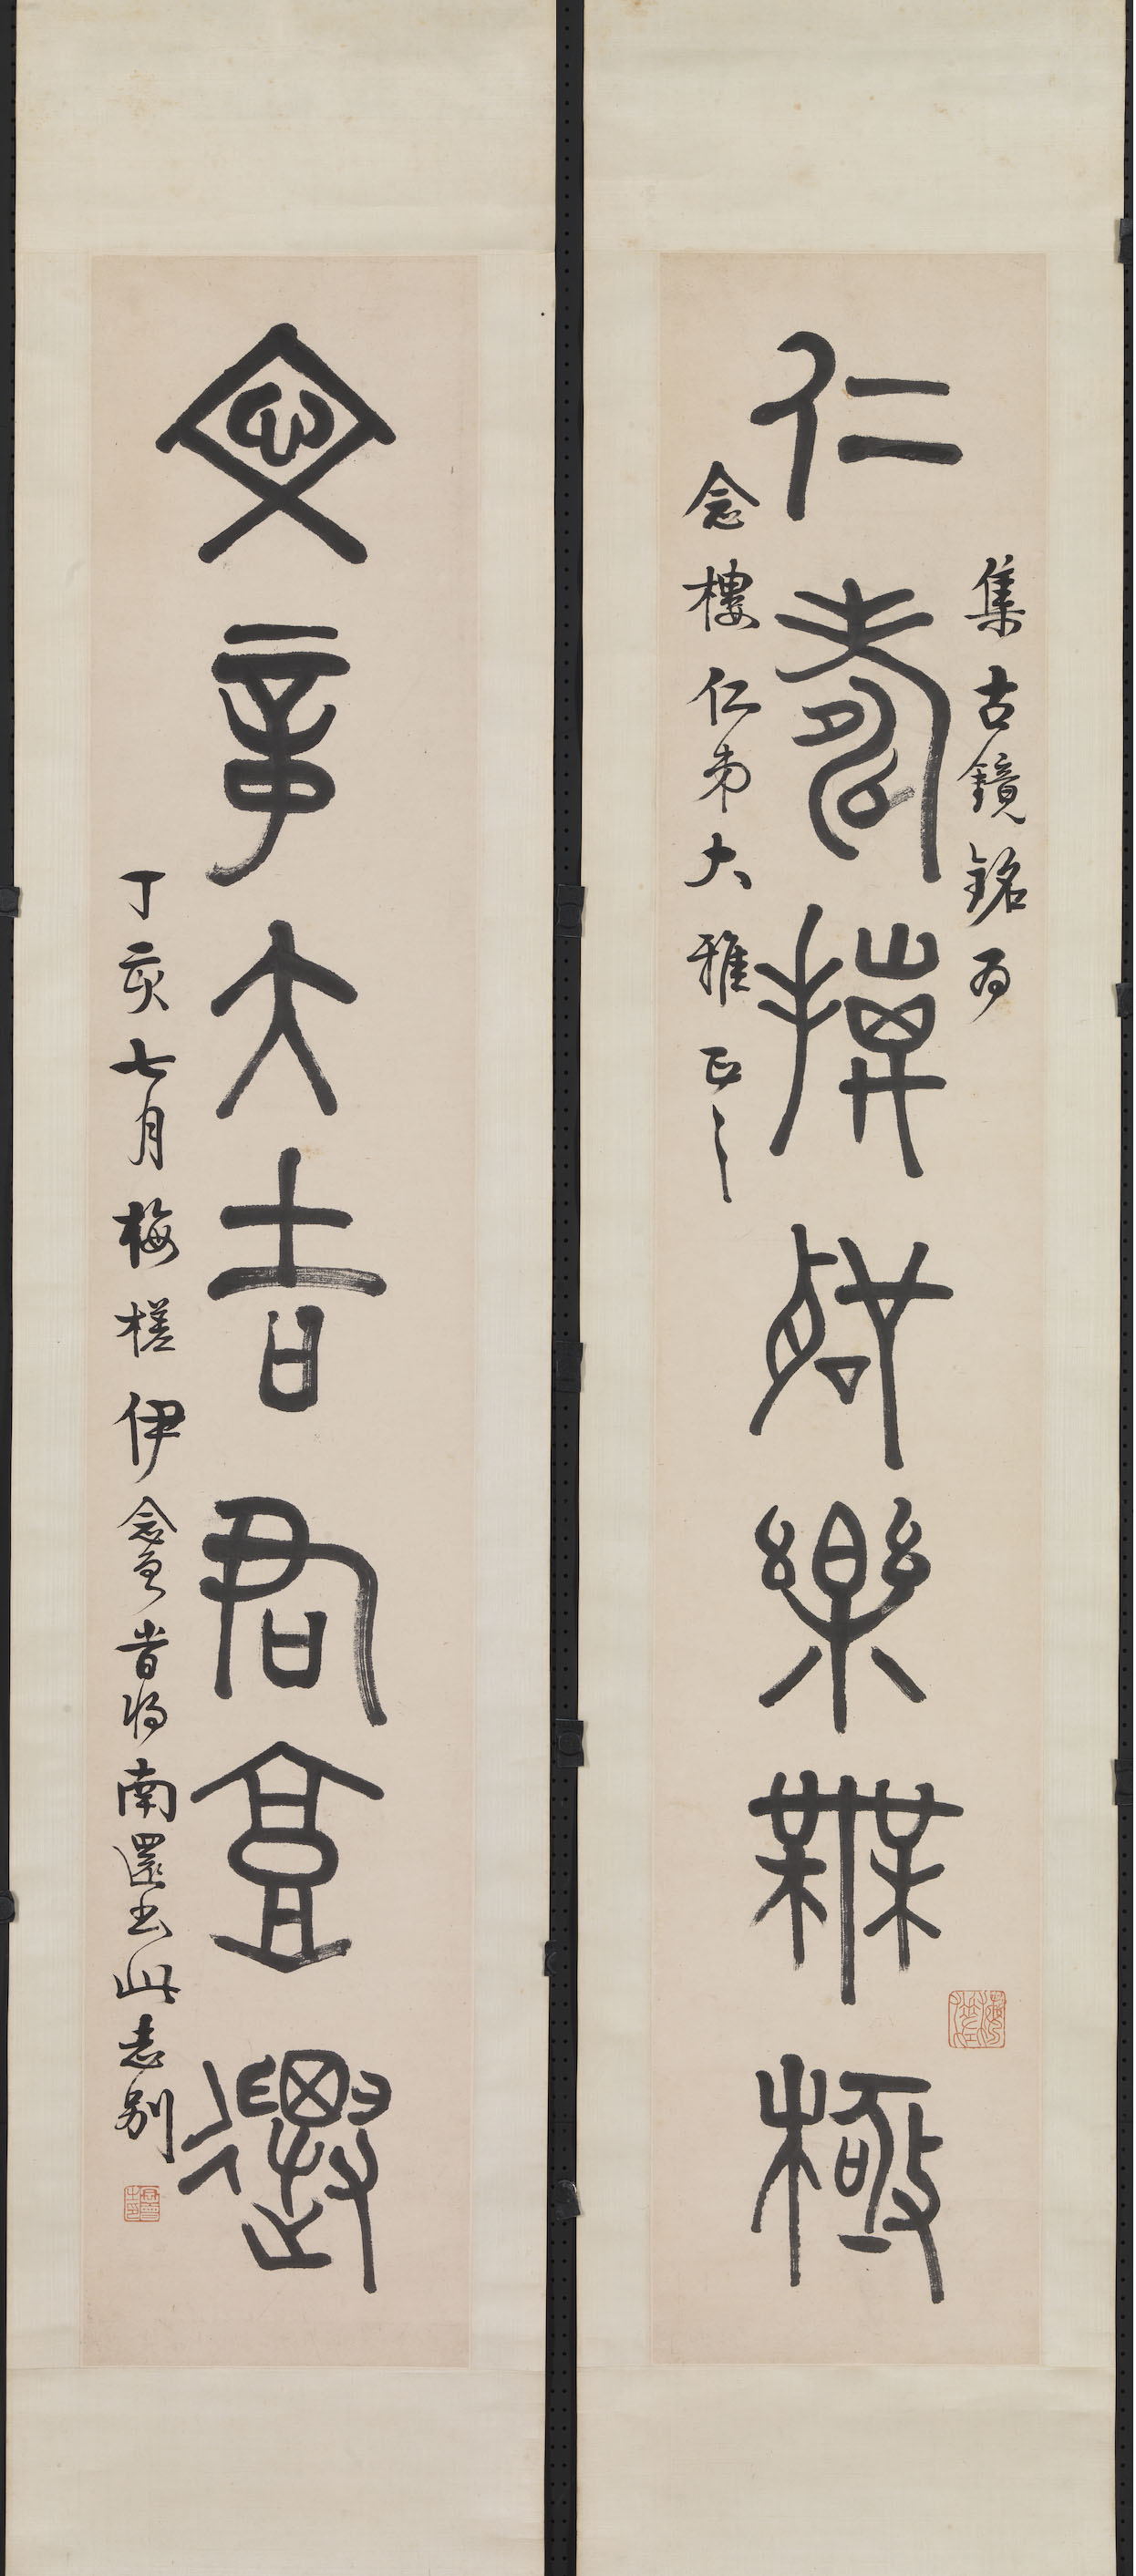 集古鏡銘為
仁壽樂無極
念樓仁弟大雅正之
文章大吉君遷
丁亥七月梅槎伊念曾旹將南還書此志別